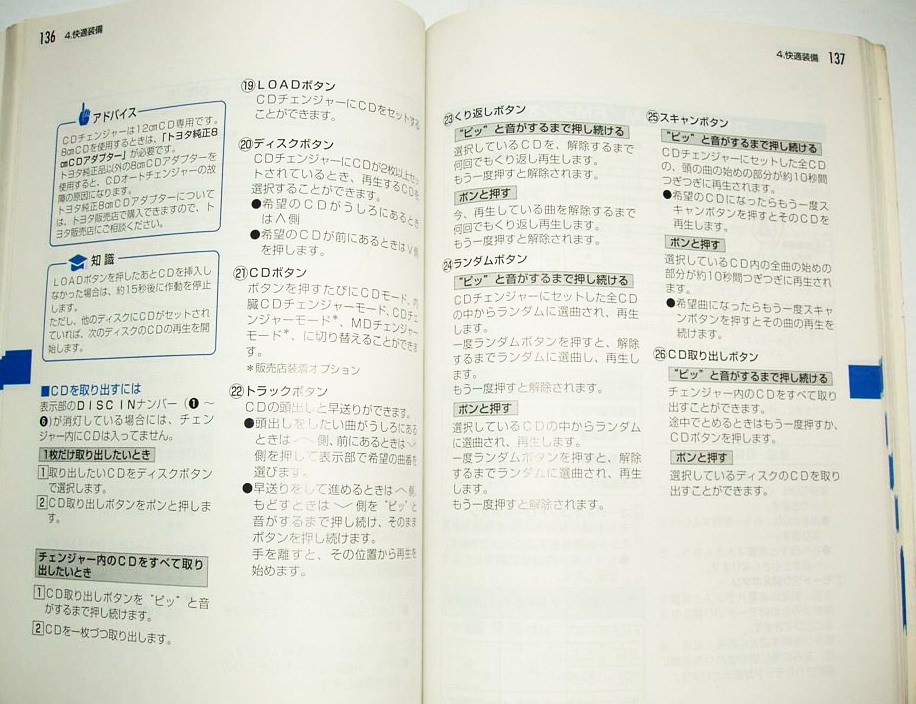 136 4.快適装備
アドバイス
CDチェンジャーは12cmCD専用です。
8cmCDを使用するときは、「トヨタ純正8
cmCDアダプター」が必要です。
トヨタ純正品以外の8cmCDアダプターを
使用すると、CDオートチェンジャーの故
障の原因になります。
トヨタ純正8cmCDアダプターについて
は、トヨタ販売店で購入できますので、ト
ヨタ販売店にご相談ください。
知識
LOADボタンを押したあとCDを挿入し
なかった場合は、約15秒後に作動を停止
します。
ただし、他のディスクにCDがセットされ
ていれば、次のディスクのCDの再生を開
始します。
■CDを取り出すには
表示部のDISC INナンバー(❶～
❻)が消灯している場合には、チェン
ジャー内にCDは入ってません。
1枚だけ取り出したいとき
1取り出したいCDをディスクボタン
で選択します。
2CD取り出しボタンをポンと押しま
す。
チェンジャー内のCDをすべて取り
出したいとき
1CD取り出しボタンを“ピッ”と音
がするまで押し続けます。
2CDを一枚づつ取り出します。
⑲LOADボタン
CDチェンジャーにCDをセットする
ことができます。
⑳ディスクボタン
CDチェンジャーにCDが2枚以上セッ
トされているとき、再生するCDを
選択することができます。
●希望のCDがうしろにあるとき
は∧側
●希望のCDが前にあるときは∨側
を押します。
㉑CDボタン
ボタンを押すたびにCDモード、内
臓CDチェンジャーモード、CDチェ
ンジャーモード*、MDチェンジャー
モード*、に切り替えることができま
す。
*販売店装着オプション
㉒トラックボタン
CDの頭出しと早送りができます。
●頭出しをしたい曲がうしろにある
ときは︿側、前にあるときは﹀
側を押して表示部で希望の曲番を
選びます。
●早送りをして進めるときは︿側、
もどすときは﹀側を“ピッ”と
音がするまで押し続け、そのまま
ボタンを押し続けます。
手を離すと、その位置から再生を
始めます。
4.快適装備 137
㉓くり返しボタン
“ピッ”と音がするまで押し続ける
選択しているCDを、解除するまで
何回でもくり返し再生します。
もう一度押すと解除されます。
ポンと押す
今、再生している曲を解除するまで
何回でもくり返し再生します。
もう一度押すと解除されます。
㉔ランダムボタン
“ピッ”と音がするまで押し続ける
CDチェンジャーにセットした全CD
の中からランダムに選曲され、再生
します。
一度ランダムボタンを押すと、解除
するまでランダムに選曲し、再生し
ます。
もう一度押すと解除されます。
ポンと押す
選択しているCDの中からランダム
に選曲され、再生します。
一度ランダムボタンを押すと、解除
するまでランダムに選曲され、再生
します。
もう一度押すと解除されます。
㉕スキャンボタン
“ピッ”と音がするまで押し続ける
CDチェンジャーにセットした全CD
の、頭の曲の始めの部分が約10秒間
つぎつぎに再生されます。
●希望のCDになったらもう一度ス
キャンボタンを押すとそのCDを
再生します。
ポンと押す
選択しているCD内の全曲の始めの
部分が約10秒間つぎつぎに再生され
ます。
●希望曲になったらもう一度スキャ
ンボタンを押すとその曲の再生を
続けます。
㉖CD取り出しボタン
“ピッ”と音がするまで押し続ける
チェンジャー内のCDをすべて取り
出すことができます。
途中でとめるときはもう一度押すか、
CDボタンを押します。
ポンと押す
選択しているディスクのCDを取り
出すことができます。